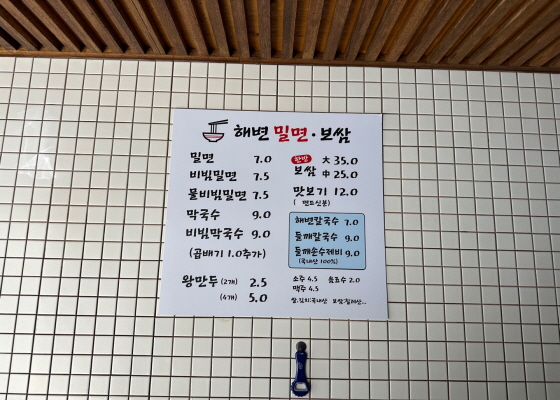 해변 밀면·보쌈
밀면 7.0
비빔밀면 7.5
물비빔밀면 7.5
막국수 9.0
비빔막국수 9.0
(곱배기 1.0추가)
왕만두 (2개) 2.5
(4개) 5.0
한방
보쌈 大 35.0
中 25.0
맛보기 12.0
해변칼국수 7.0
들깨칼국수 9.0
들깨손수제비 9.0
(국내산 100%)
소주 4.5 음료수 2.0
맥주 4.5
쌀,김치:국내산